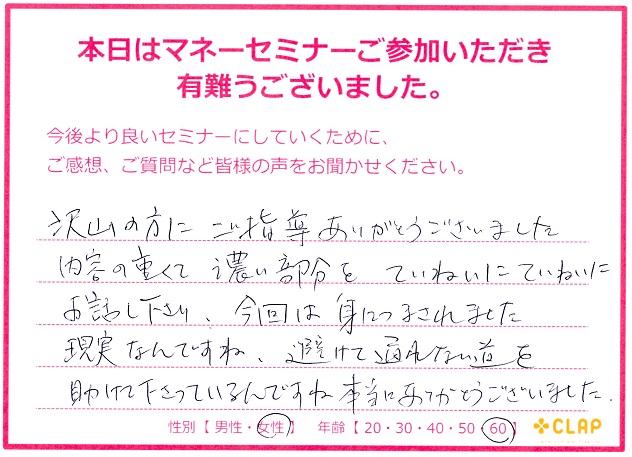 本日はマネーセミナーご参加いただき
有難うございました。
今後より良いセミナーにしていくために、
ご感想、ご質問など皆様の声をお聞かせください。
沢山の方に ご指導ありがとうございました
内容の重くて 濃い部分を ていねいにていねいに
お話し下さり、今回は身につまされました
現実なんですね、避けて通れない道を
助けて下さっているんですね本当にありがとうございました.
性別【 男性・女性 】 年齢【 20・30・40・50・60 】 CLAP